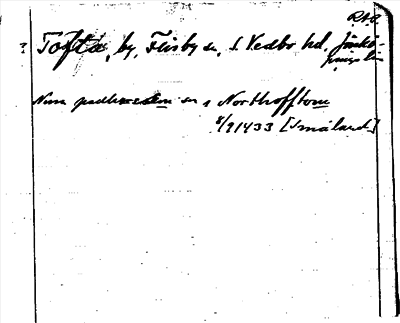 RAÄ
? Tofta, by, Flisby sn, S. Vedbo hd, Jönkö-
pings län
Num predhmesten en s Northofftom
8/9 1433 [Småland]